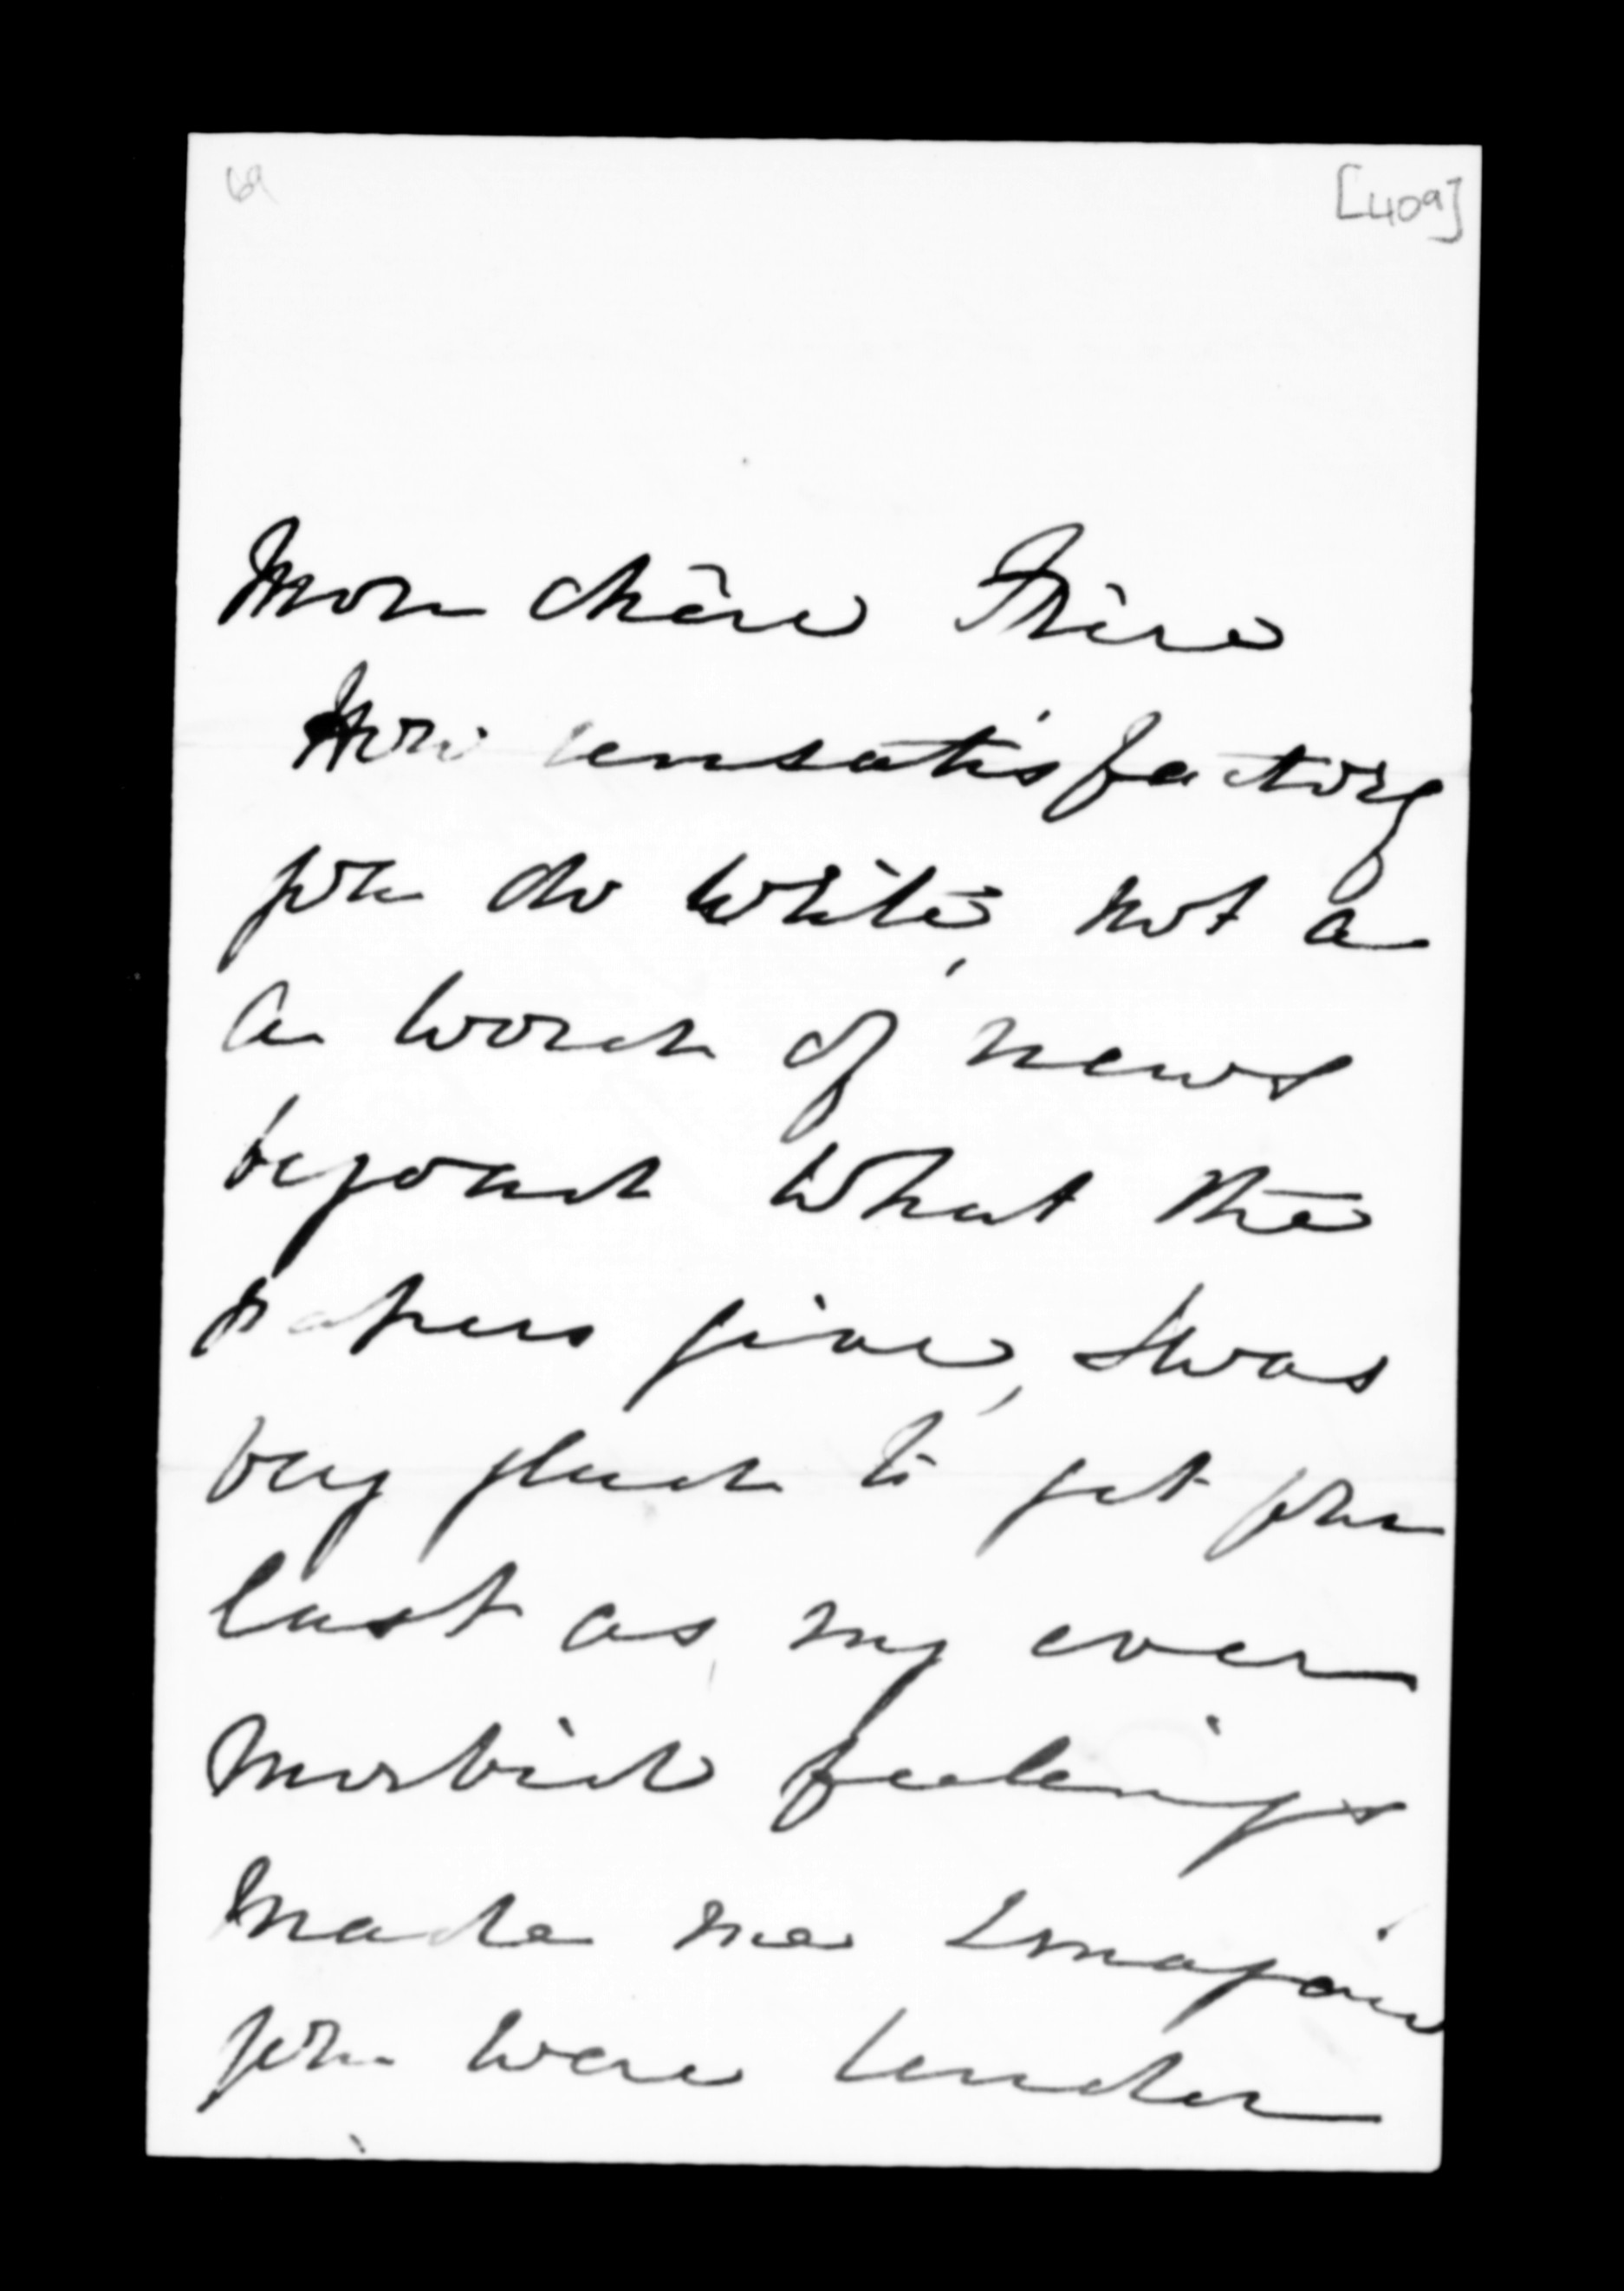 69
[409]
Mon chère Frère
How unsatisfactory
you do write, not a
a word of news
beyond what the
papers give, I was
very glad to get your
last as, my ever
morbid feelings
made me imagine
you were under